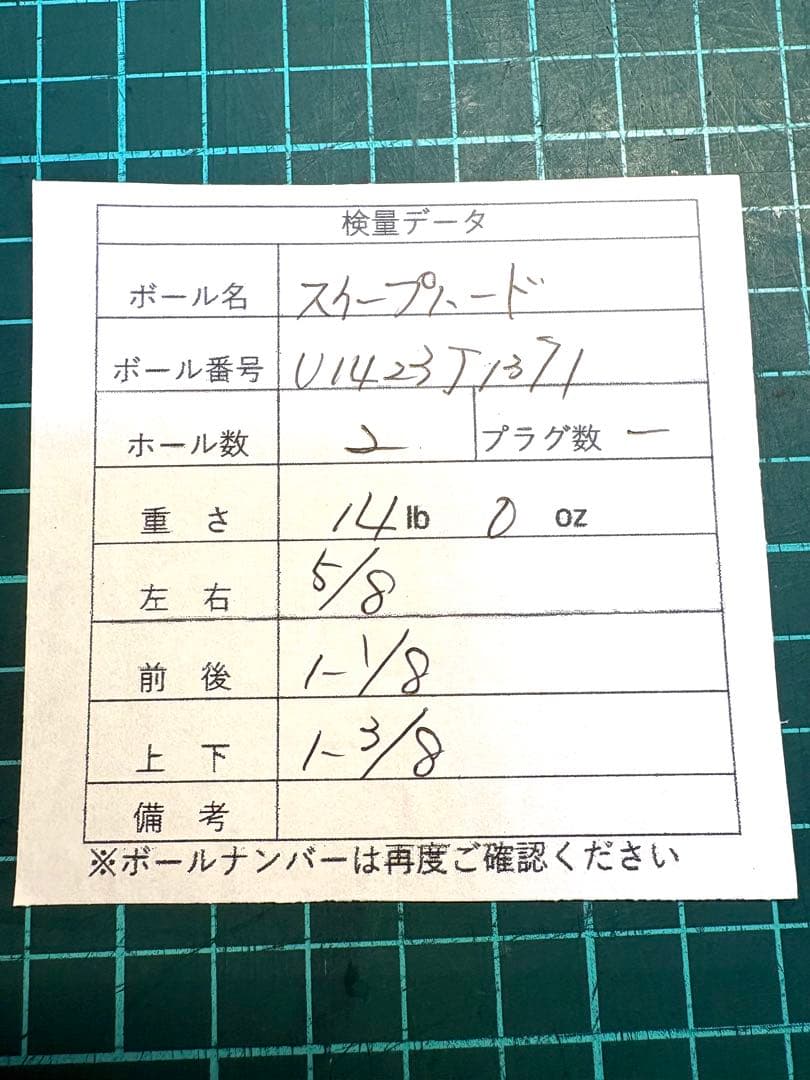 検量データ
ボール名 スイープハード
ボール番号 U1423J1371
ホール数 2 プラグ数 ー
重さ 14 lb 0 oz
左右 5/8
前後 1-1/8
上下 1-3/8
備考
※ボールナンバーは再度ご確認ください